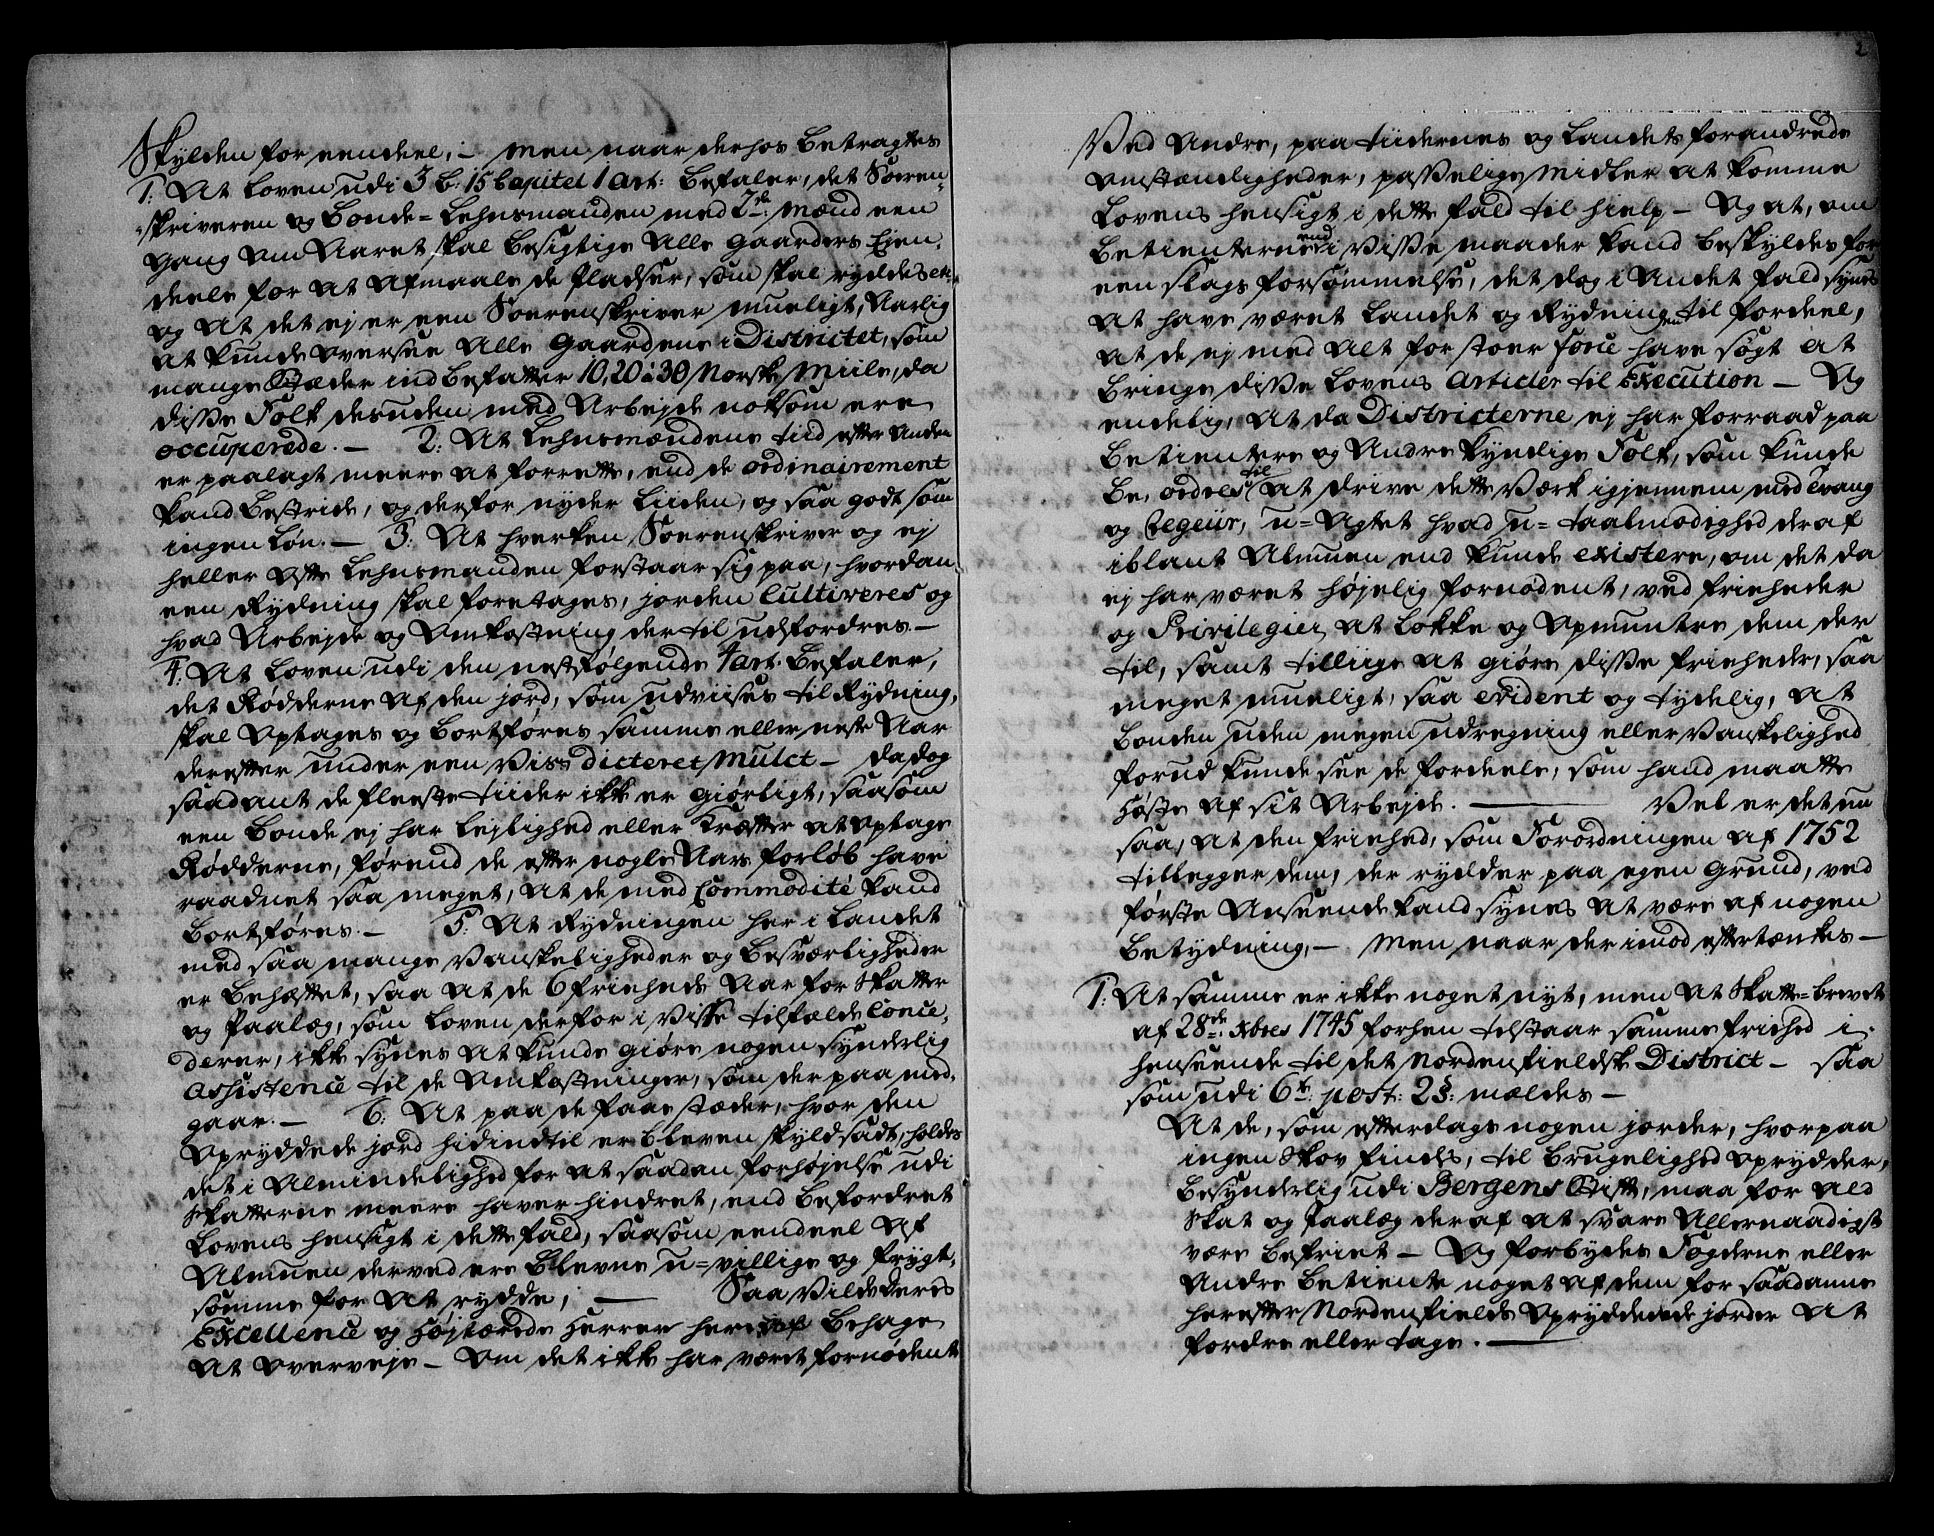 Skylden for eendeel, – Men naar derhos betragtes
1: At Loven udi 3 B: 15 Capitel 1 art: befaler, det Soren-
skriveren og Bonde-Lehnsmanden med 2de: Mænd een
gang om Aaret skal besigtige Alle Gaarders Ejen-
deele for at Afmaale de Pladser, som skal ryddes etc.
og At det ej er een Sorenskriver mueligt, Aarlig
at kunde oversee Alle Gaardene i Districtet, som
mange Stæder indbefatter 10, 20 à 30 Norske Miile, da
disse Folk desuden med Arbejde noksom ere
occuperede. – 2: At Lehnsmændene tiid efter anden
er paalagt meere at forrette, end de ordinairement
kand bestride, og derfor nyder liiden, og saa godt som
ingen Løn. – 3: At hverken Sorenskriver og ej
heller ofte Lehnsmanden forstaar sig paa, hvordan
een Rydning skal foretages, jorden Cultiveres og
hvad Arbejde og Omkostning der til udfordres –
4: At Loven udi den nestfølgende 4 art: befaler,
det Rødderne af den jord, som udviises til Rydning,
skal optages og bortføres samme eller neste Aar
derefter under een viss dicteret Mulct – da dog
saadant de fleeste tiider ikke er giørligt, saasom
een Bonde ej har lejlighed eller Kræfter at optage
Rødderne, førend de efter nogle Aars forløb have
raadnet saa meget, at de med Commodité kand
bortføres. – 5: At Rydningen her i Landet
med saa mange vanskeligheder og besværligheder
er behæftet, saa at de 6 friheds Aar for Skatter
og Paalæg, som Loven derfor i visse tilfælde conce-
derer, ikke synes at kunde giøre nogen synderlig
Assistence til de Omkostninger, som der paa med-
gaar. – 6: At paa de faae stæder, hvor den
opryddede jord hidindtil er bleven skyldsadt, holdes
det i Almindelighed for at saadan forhøjelse udi
Skatterne meere haver hindret, end befordret
Lovens hensigt i dette fald, saasom eendeel af
Almuen derved ere blevne u-villige og frygt-
somme for at rydde, – Saa vilde deres
Excellence og Højlærede Herrer heraf behage
at overveje – Om det ikke har været fornødent
2
Ved Andre, paa tiidernes og Landets forandrede
omstændigheder, passelige Midler at komme
Lovens hensigt i dette fald til hielp – Og at, om
betienterne end i visse maader kand beskyldes for
een slags forsømmelse, det dog i Andet fald synes
at have været Landet og Rydningen til fordeel,
at de ej med alt for stoer force have søgt at
bringe disse Lovens Articler til Execution – Og
endelig, at da Districterne ej har forraad paa
betientere og Andre kyndige Folk, som kunde
be-ordres til at drive dette Værk igjennem med Tvang
og Regeur, u-Agtet hvad u-taalmodighed deraf
iblant Almuen end kunde existere, om det da
ej har været højelig fornødent, ved friheder
og Privilegier at lokke og opmuntre dem der
til, samt tilliige at giøre disse friheder, saa
meget mueligt, saa evident og tydelig, at
bonden uden megen udregning eller Vanskelighed
forud kunde see de fordeele, som hand maatte
høste af sit Arbejde. – Vel er det nu
saa, at den frihed, som Forordningen af 1752
tillegger dem, der rydder paa egen Grund, ved
første Anseende kand synes at være af nogen
betydning, – Men naar der imod eftertænkes –
1: At samme er ikke noget nyt, men at Skatte-brevet
af 28de: Xbres 1745 forhen tilstaar samme frihed i
henseende til det Nordenfieldske District – saa
som udi 6te: post: 2 §: mældes –
At de, som efterdags nogen jorder, hvorpaa
ingen Skov findes, til brugelighed oprydder,
besynderlig udi Bergens Stift, maa for ald
Skat og Paalæg deraf at svare Allernaadigst
være befriet – Og forbydes Fogderne eller
Andre betiente noget af dem for saadanne
herefter Nordenfields opryddede jorder at
fordre eller tage. –